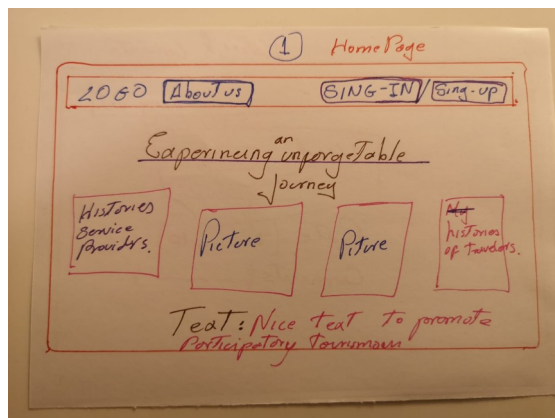 1 HomePage
LOGO About us SING-IN / Sing-up
Experincing an unforgetable
Journey
Histories
Service
Providers.
Picture
Piture
histories
of travelers.
Text: Nice text to promote
Participatory tourismm